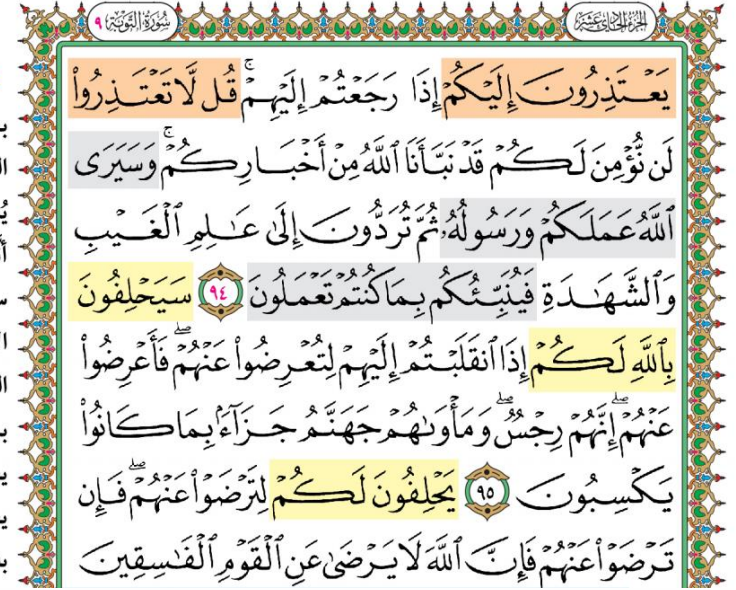 سُورَةُ التَّوْبَةِ ٩
الجُزْءُ الحَادِي عَشَرَ
يَعْتَذِرُونَ إِلَيْكُمْ إِذَا رَجَعْتُمْ إِلَيْهِمْ ۚ قُل لَّا تَعْتَذِرُوا۟
لَن نُّؤْمِنَ لَكُمْ قَدْ نَبَّأَنَا ٱللَّهُ مِنْ أَخْبَارِكُمْ ۚ وَسَيَرَى
ٱللَّهُ عَمَلَكُمْ وَرَسُولُهُۥ ثُمَّ تُرَدُّونَ إِلَىٰ عَـٰلِمِ ٱلْغَيْبِ
وَٱلشَّهَـٰدَةِ فَيُنَبِّئُكُم بِمَا كُنتُمْ تَعْمَلُونَ ٩٤ سَيَحْلِفُونَ
بِٱللَّهِ لَكُمْ إِذَا ٱنقَلَبْتُمْ إِلَيْهِمْ لِتُعْرِضُوا۟ عَنْهُمْ ۖ فَأَعْرِضُوا۟
عَنْهُمْ ۖ إِنَّهُمْ رِجْسٌ ۖ وَمَأْوَىٰهُمْ جَهَنَّمُ جَزَآءًۢ بِمَا كَانُوا۟
يَكْسِبُونَ ٩٥ يَحْلِفُونَ لَكُمْ لِتَرْضَوْا۟ عَنْهُمْ ۖ فَإِن
تَرْضَوْا۟ عَنْهُمْ فَإِنَّ ٱللَّهَ لَا يَرْضَىٰ عَنِ ٱلْقَوْمِ ٱلْفَـٰسِقِينَ